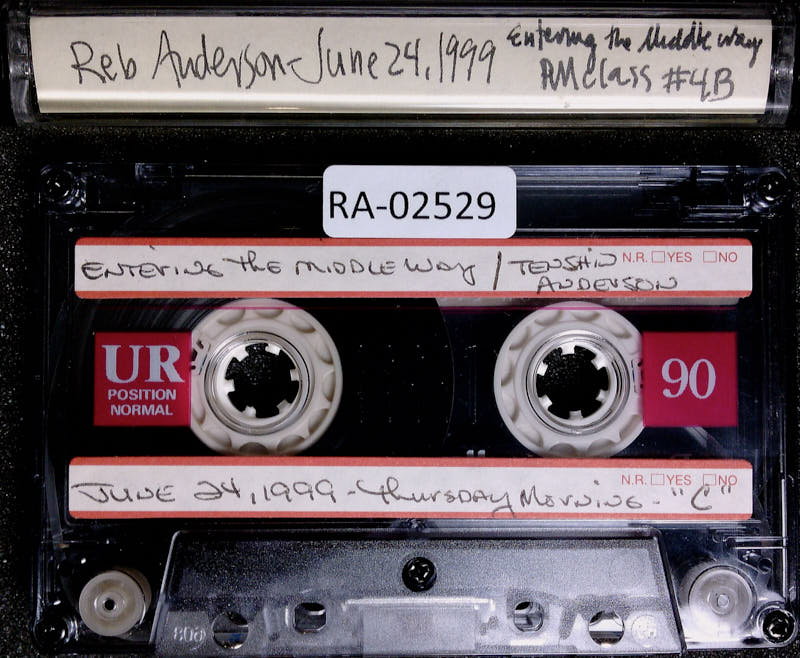 Reb Anderson - June 24, 1999
Entering the Middle Way
AM class #4B
RA-02529
ENTERING the MIDDLE WAY / TENSHIN
ANDERSON
N.R. □YES □NO
UR
POSITION
NORMAL
90
N.R. □YES □NO
JUNE 24, 1999 - Thursday Morning - "C"